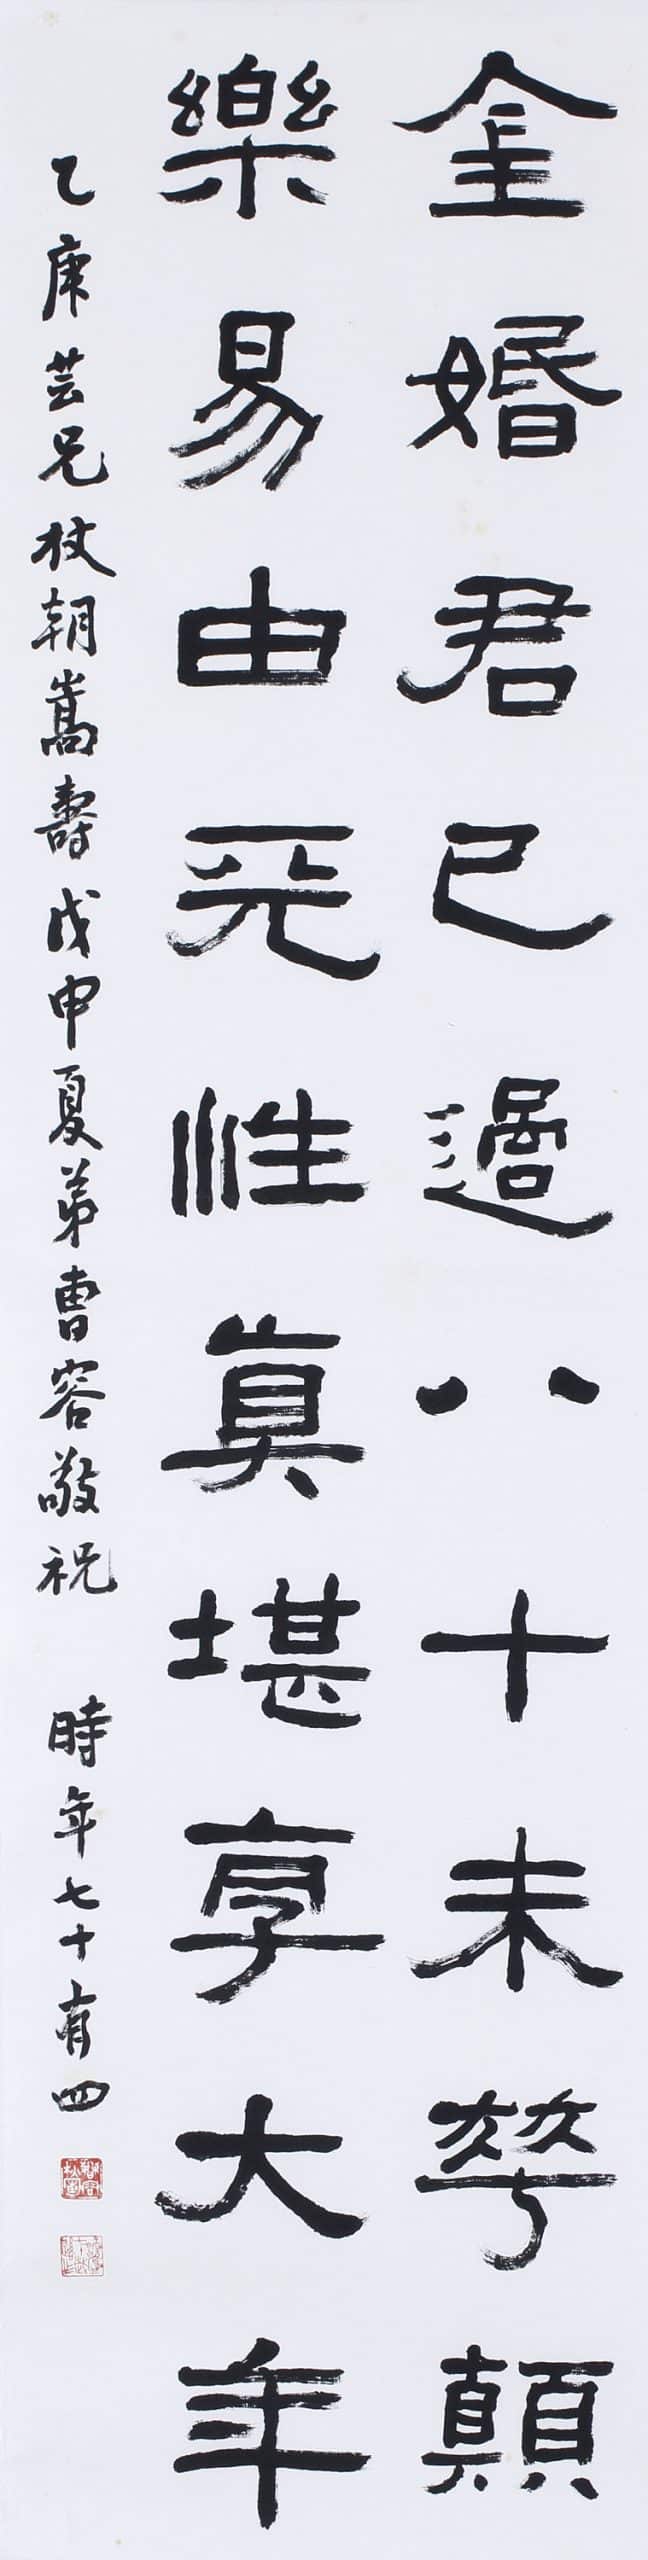 金婚君已過八十未華顛
樂易由天性真堪享大年
乙庚芸兄杖朝嵩壽戊申夏弟曹容敬祝 時年七十有四
曹容秋圃